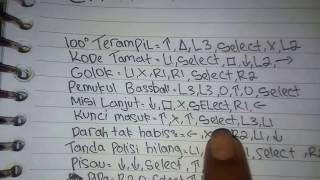 100° Terampil = ↑, Δ, L3, Select, X, L2
Kode Tamat = L1, Select, □, ↓, L2, →
Golok = L1 X, R1, R1, Select, R2
Pemukul Bassball = L3, L3, O, ↑, O, Select
Misi Lanjut = ↓, □, X, SELect, R1, ←
Kunci masuk = ↑, X, ↑, Select, L3, L1
Darah tak habis = ←, R2, L1, ↓
Tanda Polisi hilang = L1, select, R2
Pisau = ↓, ↓, Select, ↑,